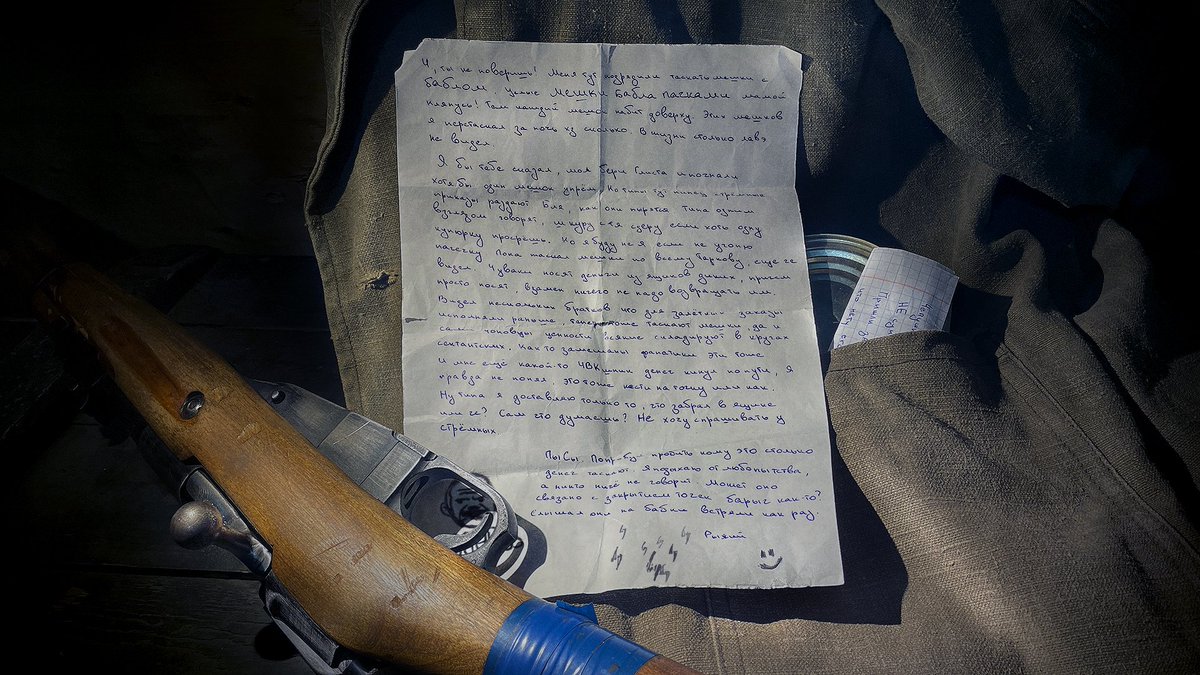 Ч, ты не поверишь! Меня тут подрядили таскать мешки с
баблом. Целые мешки бабла пачками мамой
клянусь! Там каждый мешок набит доверху. Этих мешков
я перетаскал за ночь хз сколько. В жизни столько лавэ
не видел.
Я бы тебе сказал, мол бери Глиста и погнали
хотя бы один мешок упрём. Но типы тут пипец стремные
приказы раздают. Бля, как они пырятся. Типа одним
взглядом говорят, шкуру с тя сдеру если хоть одну
купюрку просрёшь. Но я буду не я если не угоню
пачечку. Пока таскал мешки по всему Таркову, ещё че
видел. Чуваки носят деньги из ящиков диких, причем
просто носят, взамен ничего не надо возвращать им.
Видел нескольких братков что для залётных заказы
исполняли раньше, теперь тоже таскают мешки. да и
сами чоповцы ценности всякие складируют в кругах
сектантских. Как-то замешаны фанатики эти тоже
И мне ещё какой-то ЧВКшник денег кинул по пути, я
правда не понял, это тоже нести на точку или как.
Ну типа я доставляю только то, что забрал в ящике
или че? Сам что думаешь? Не хочу спрашивать у
стрёмных.
ПыСы. Попробуй пробить кому это столько
денег таскают. Я подыхаю от любопытства,
а никто ничё не говорит. Может оно
связано с закрытием точек барыг как-то?
Слышал они на бабки встряли как раз.
Рыжий
НЕ
Пришли
что